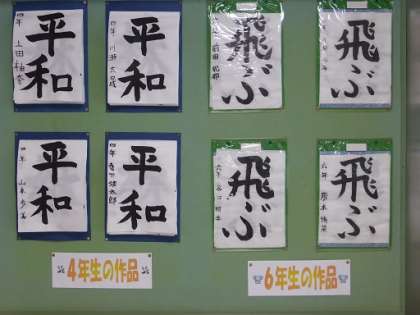 平和
四年
平和
四年
飛ぶ
飛ぶ
平和
四年
平和
四年
飛ぶ
六年
飛ぶ
六年
4年生の作品
6年生の作品